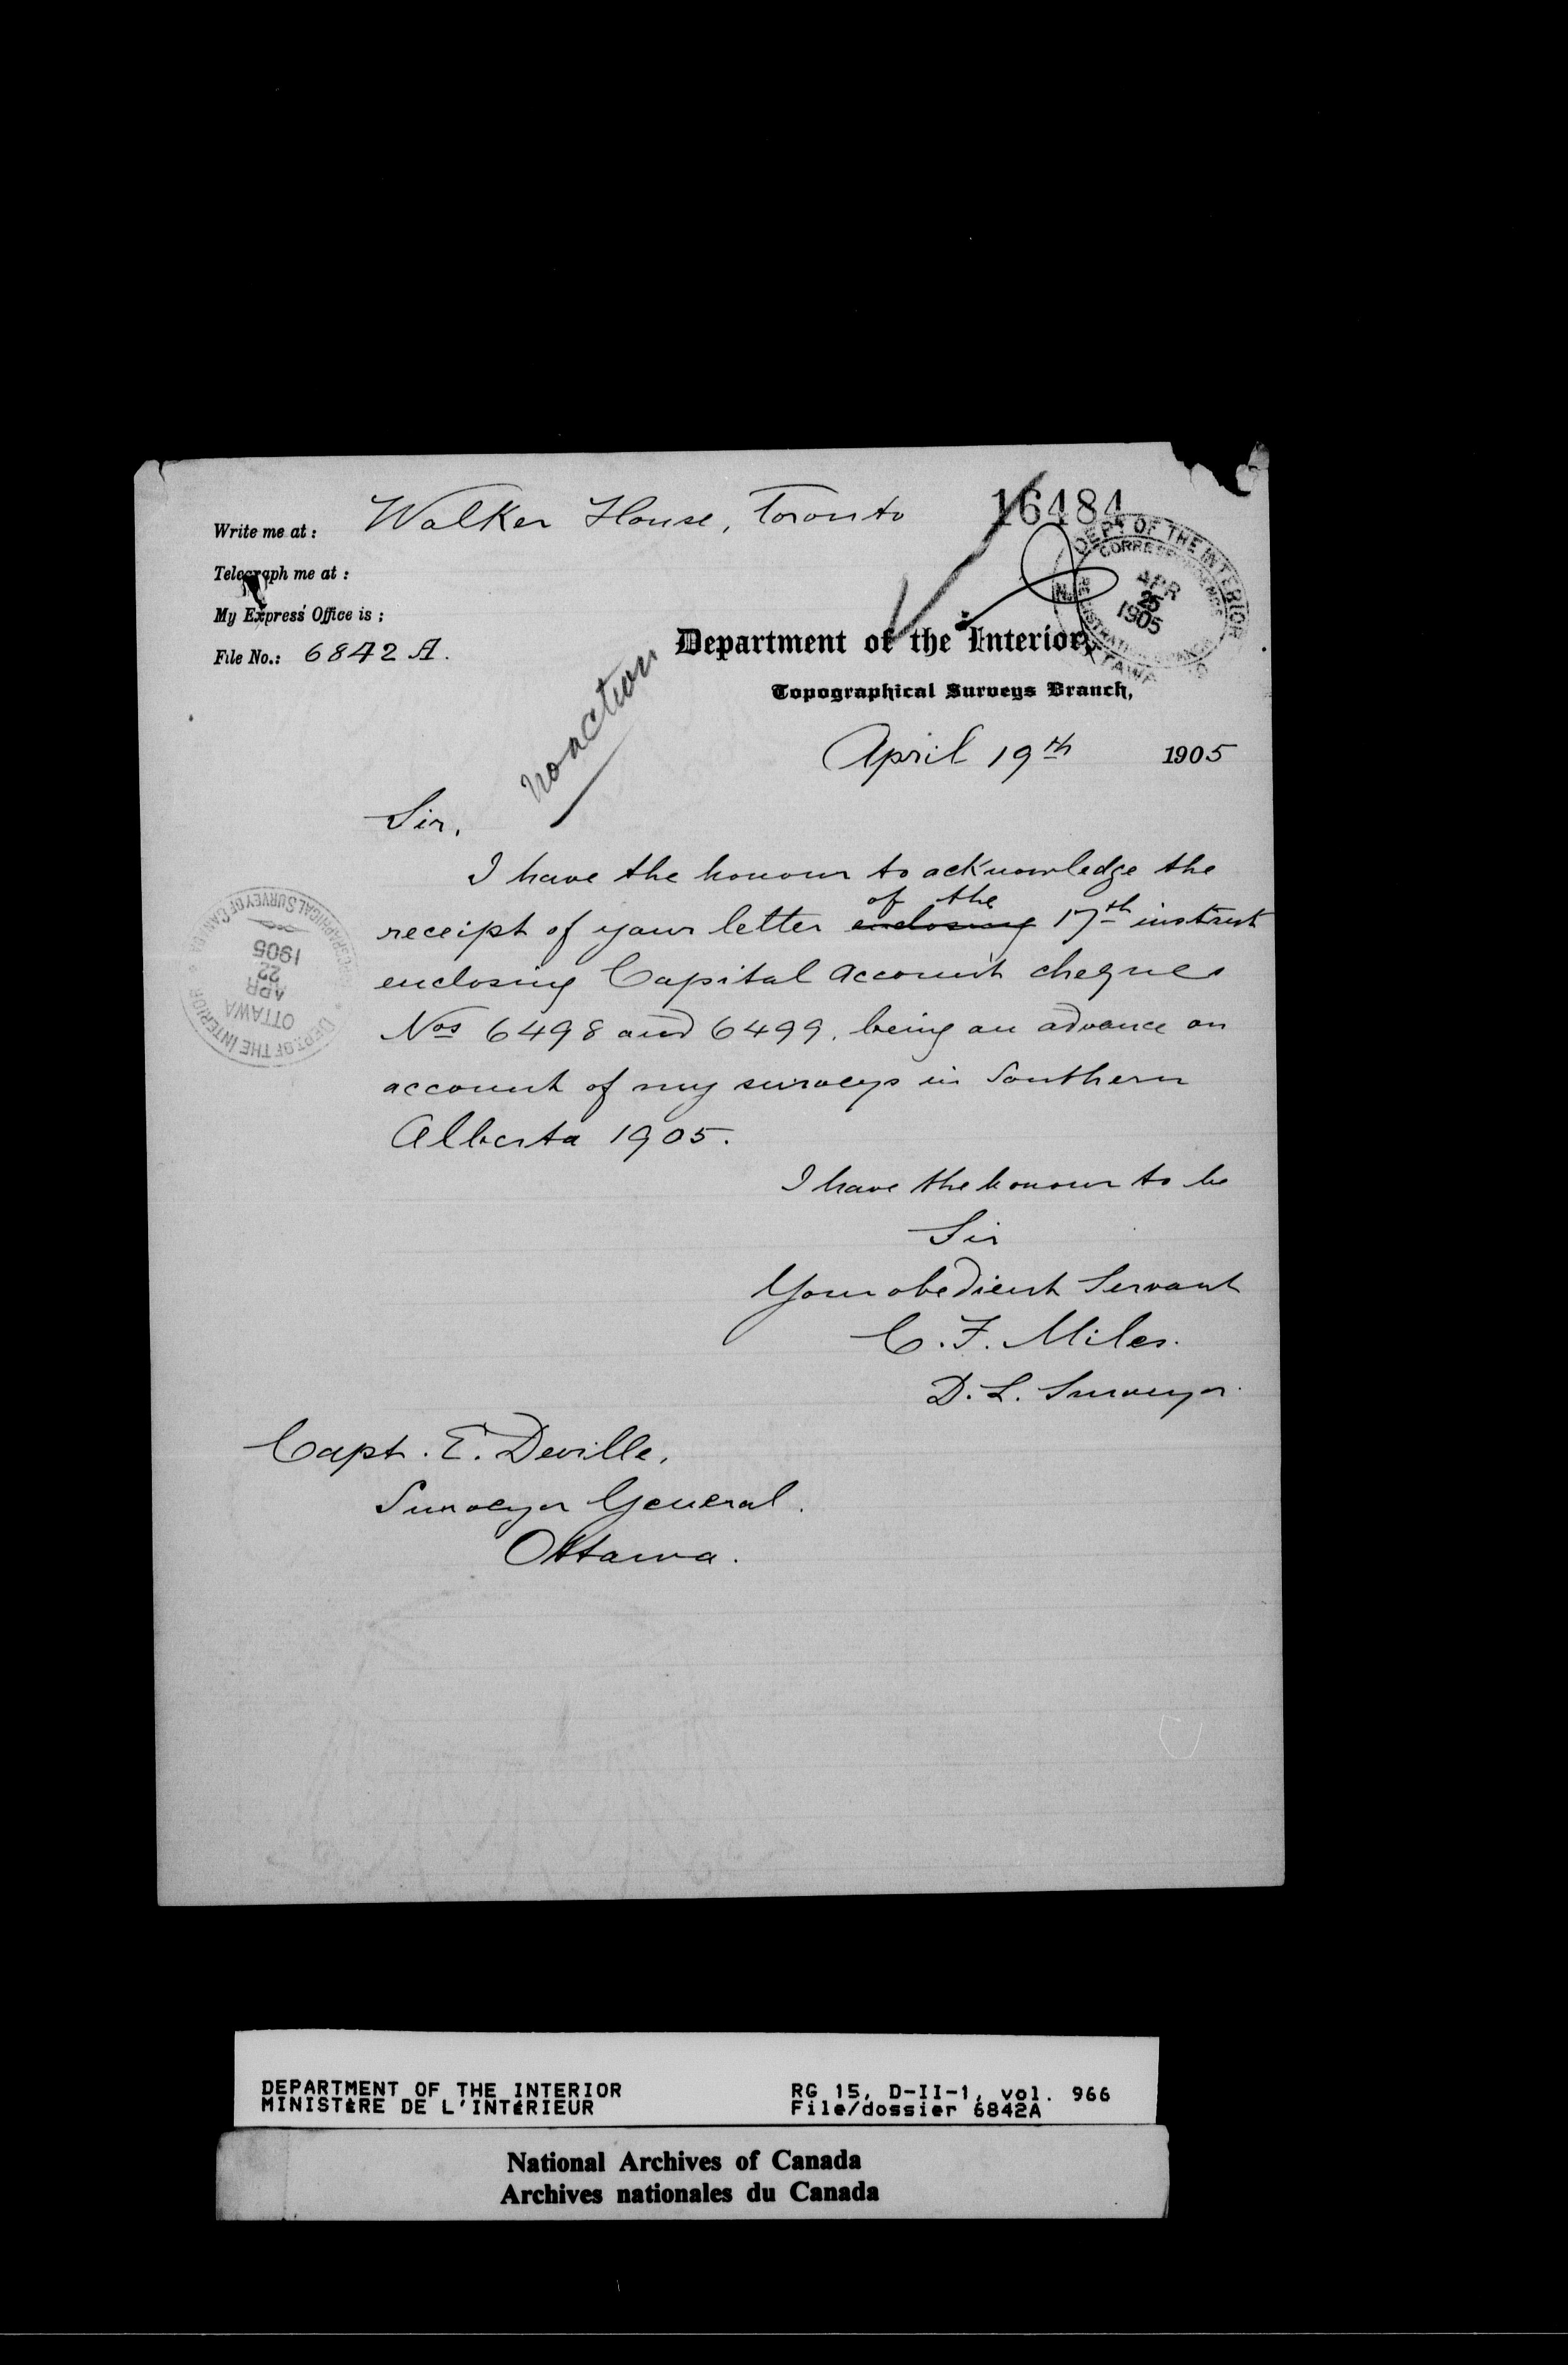 16484
Write me at : Walker House, Toronto
Telegraph me at :
My Express Office is :
File No.: 6842 A.
DEPT OF THE INTERIOR
CORRESPONDENCE
APR
25
1905
OTTAWA
Department of the Interior,
Topographical Surveys Branch,
no action
April 19th 1905
Sir,
I have the honour to acknowledge the
of the
receipt of your letter enclosing 17th instant
enclosing Capital Account cheques
Nos 6498 and 6499, being an advance on
account of my surveys in Southern
Alberta 1905.
I have the honour to be
Sir
Your obedient Servant
C. F. Miles.
D. L. Surveyor.
Capt. E. Deville,
Surveyor General.
Ottawa.
DEPT. OF THE INTERIOR
OTTAWA
APR
22
1905
TOPOGRAPHICAL SURVEY OF CANADA
DEPARTMENT OF THE INTERIOR
MINISTÈRE DE L'INTÉRIEUR
RG 15, D-II-1, vol. 966
File/dossier 6842A
National Archives of Canada
Archives nationales du Canada